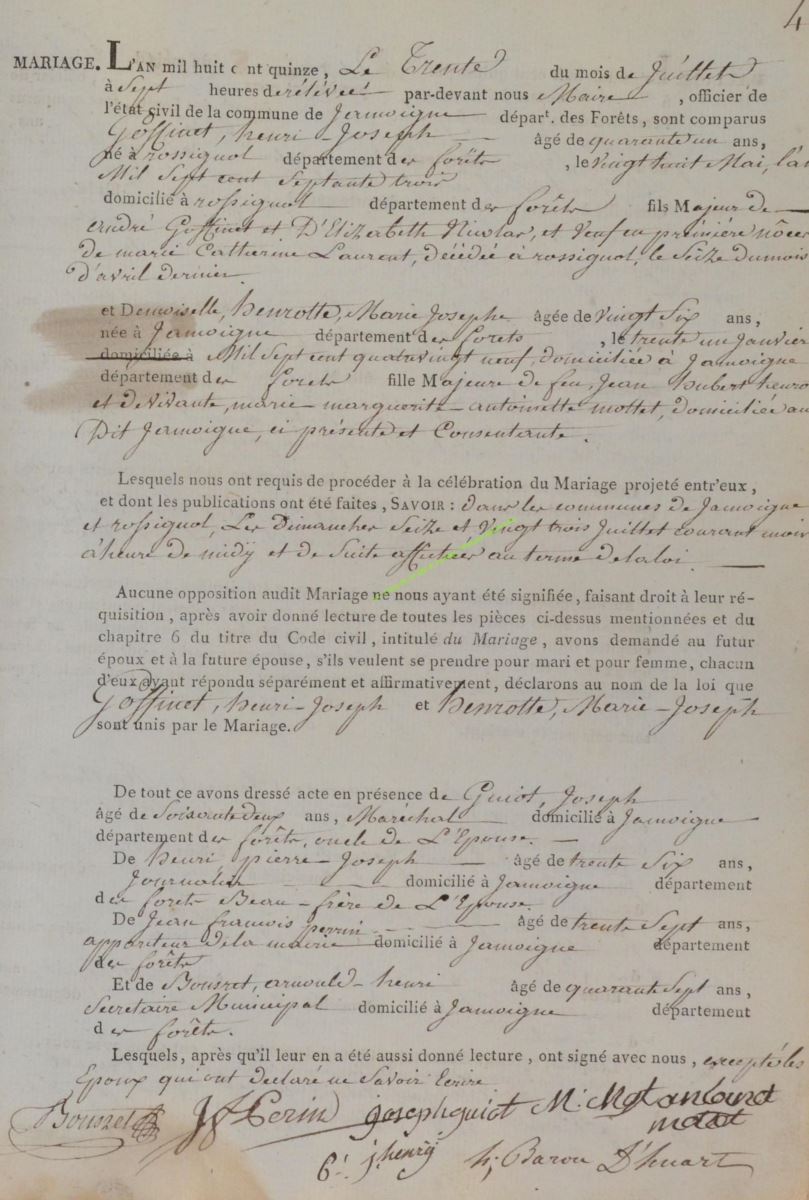 4
MARIAGE. L'AN mil huit cent quinze, Le Trente du mois de Juillet
à Sept heures de rélévée par-devant nous Maire, officier de
l'état civil de la commune de Jamoigne départ. des Forêts, sont comparus
Goffinet, henri-Joseph âgé de quarante un ans,
né à rossignol département des forêts, le vingt huit Mai, l'an
Mil Sept cent Septante trois
domicilié à rossignol département des forêts fils Majeur de
andré Goffinet et D'Elizabeth Nicolas, et veuf en première nôces
de marie Catherine Laurent, décédée à rossignol, le Seize du mois
d'avril dernier.
et Demoiselle, henrotte, Marie Josephe âgée de vingt Six ans,
née à Jamoigne département des forets, le trente un Janvier
domiciliée à Mil Sept cent quatre vingt neuf, domiciliée à Jamoigne
département des forets fille Majeure de feu, Jean hubert henro
et de vivante, marie-marguerite-antoinette mottet, domiciliée au
Dit Jamoigne, ci présente et Consentante.
Lesquels nous ont requis de procéder à la célébration du Mariage projeté entr'eux,
et dont les publications ont été faites, SAVOIR: dans les communes de Jamoigne
et rossignol, Les Dimanches Seize et vingt trois Juillet courant mois
à heure de midÿ et de Suite affichées au terme de la loi.
Aucune opposition audit Mariage ne nous ayant été signifiée, faisant droit à leur ré-
quisition, après avoir donné lecture de toutes les pièces ci-dessus mentionnées et du
chapitre 6 du titre du Code civil, intitulé du Mariage, avons demandé au futur
époux et à la future épouse, s'ils veulent se prendre pour mari et pour femme, chacun
d'eux ayant répondu séparément et affirmativement, déclarons au nom de la loi que
Goffinet, henri-Joseph et henrotte, Marie-Joseph
sont unis par le Mariage.
De tout ce avons dressé acte en présence de Guiot, Joseph
âgé de Soixante deux ans, Maréchal domicilié à Jamoigne
département des forêts, oncle de L'Epouse.
De henri pierre-Joseph âgé de trente Six ans,
Journalier domicilié à Jamoigne département
des forets Beau-frère de L'Epouse.
De Jean francois perrin âgé de trente Sept ans,
appariteur de la mairie domicilié à Jamoigne département
des forêts
Et de Bousret, arnould-henri âgé de quarante Sept ans,
Secretaire Municipal domicilié à Jamoigne département
des forêts.
Lesquels, après qu'il leur en a été aussi donné lecture, ont signé avec nous, exceptés les
Epoux qui ont declaré ne Savoir Ecrire
Bousret JF Perin joseph guiot M: M
motet
j henrÿ h; Baron D'huart